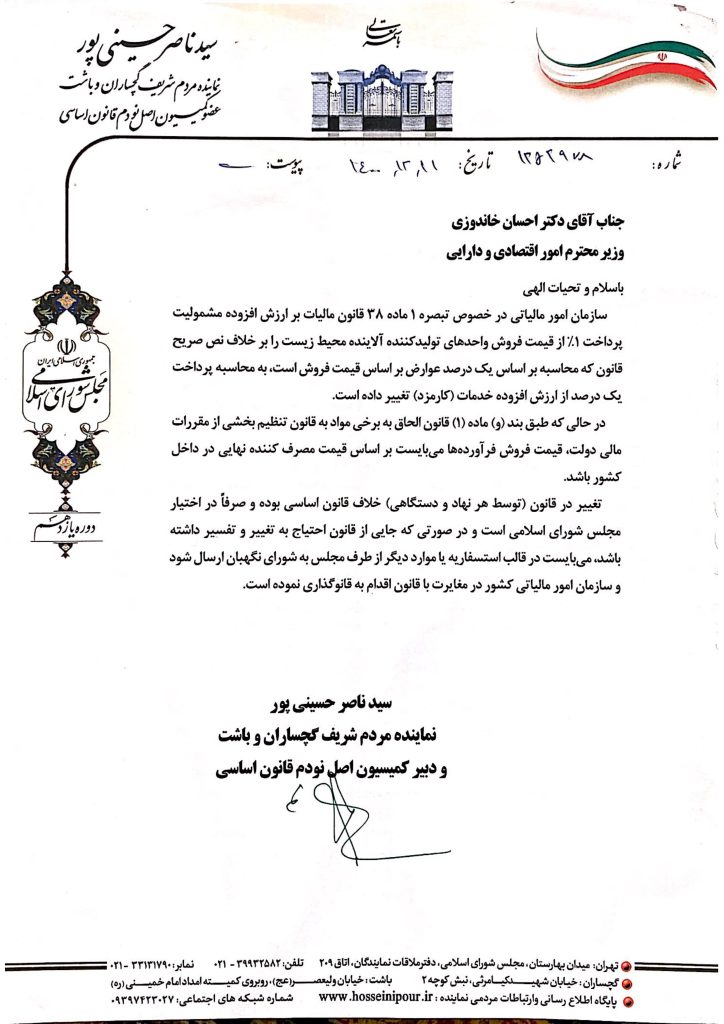 باسمه تعالی
سید ناصر حسینی پور
نماینده مردم شریف گچساران و باشت
عضو کمیسیون اصل نودم قانون اساسی
شماره: ۱۲۵۲۹۷۸ تاریخ: ۱۴۰۰,۱۲,۱۱ پیوست:
جناب آقای دکتر احسان خاندوزی
وزیر محترم امور اقتصادی و دارایی
باسلام و تحیات الهی
سازمان امور مالیاتی در خصوص تبصره ۱ ماده ۳۸ قانون مالیات بر ارزش افزوده مشمولیت
پرداخت ۱٪ از قیمت فروش واحدهای تولیدکننده آلاینده محیط زیست را بر خلاف نص صریح
قانون که محاسبه بر اساس یک درصد عوارض بر اساس قیمت فروش است، به محاسبه پرداخت
یک درصد از ارزش افزوده خدمات (کارمزد) تغییر داده است.
در حالی که طبق بند (و) ماده (۱) قانون الحاق به برخی مواد به قانون تنظیم بخشی از مقررات
مالی دولت، قیمت فروش فرآورده‌ها می‌بایست بر اساس قیمت مصرف کننده نهایی در داخل
کشور باشد.
تغییر در قانون (توسط هر نهاد و دستگاهی) خلاف قانون اساسی بوده و صرفاً در اختیار
مجلس شورای اسلامی است و در صورتی که جایی از قانون احتیاج به تغییر و تفسیر داشته
باشد، می‌بایست در قالب استسفاریه یا موارد دیگر از طرف مجلس به شورای نگهبان ارسال شود
و سازمان امور مالیاتی کشور در مغایرت با قانون اقدام به قانوگذاری نموده است.
جمهوری اسلامی ایران
مجلس شورای اسلامی
دوره یازدهم
سید ناصر حسینی پور
نماینده مردم شریف گچساران و باشت
و دبیر کمیسیون اصل نودم قانون اساسی
تهران: میدان بهارستان، مجلس شورای اسلامی، دفتر ملاقات نمایندگان، اتاق ۲۰۹ تلفن: ۳۹۹۳۲۵۸۲ - ۰۲۱ نمابر: ۳۳۱۳۱۷۹۰ - ۰۲۱
گچساران: خیابان شهیدکیامرثی، نبش کوچه ۲ باشت: خیابان ولیعصر(عج)، روبروی کمیته امداد امام خمینی (ره)
پایگاه اطلاع رسانی وارتباطات مردمی نماینده : www.hosseinipour.ir شماره شبکه های اجتماعی: ۰۹۳۹۷۴۲۳۰۲۷